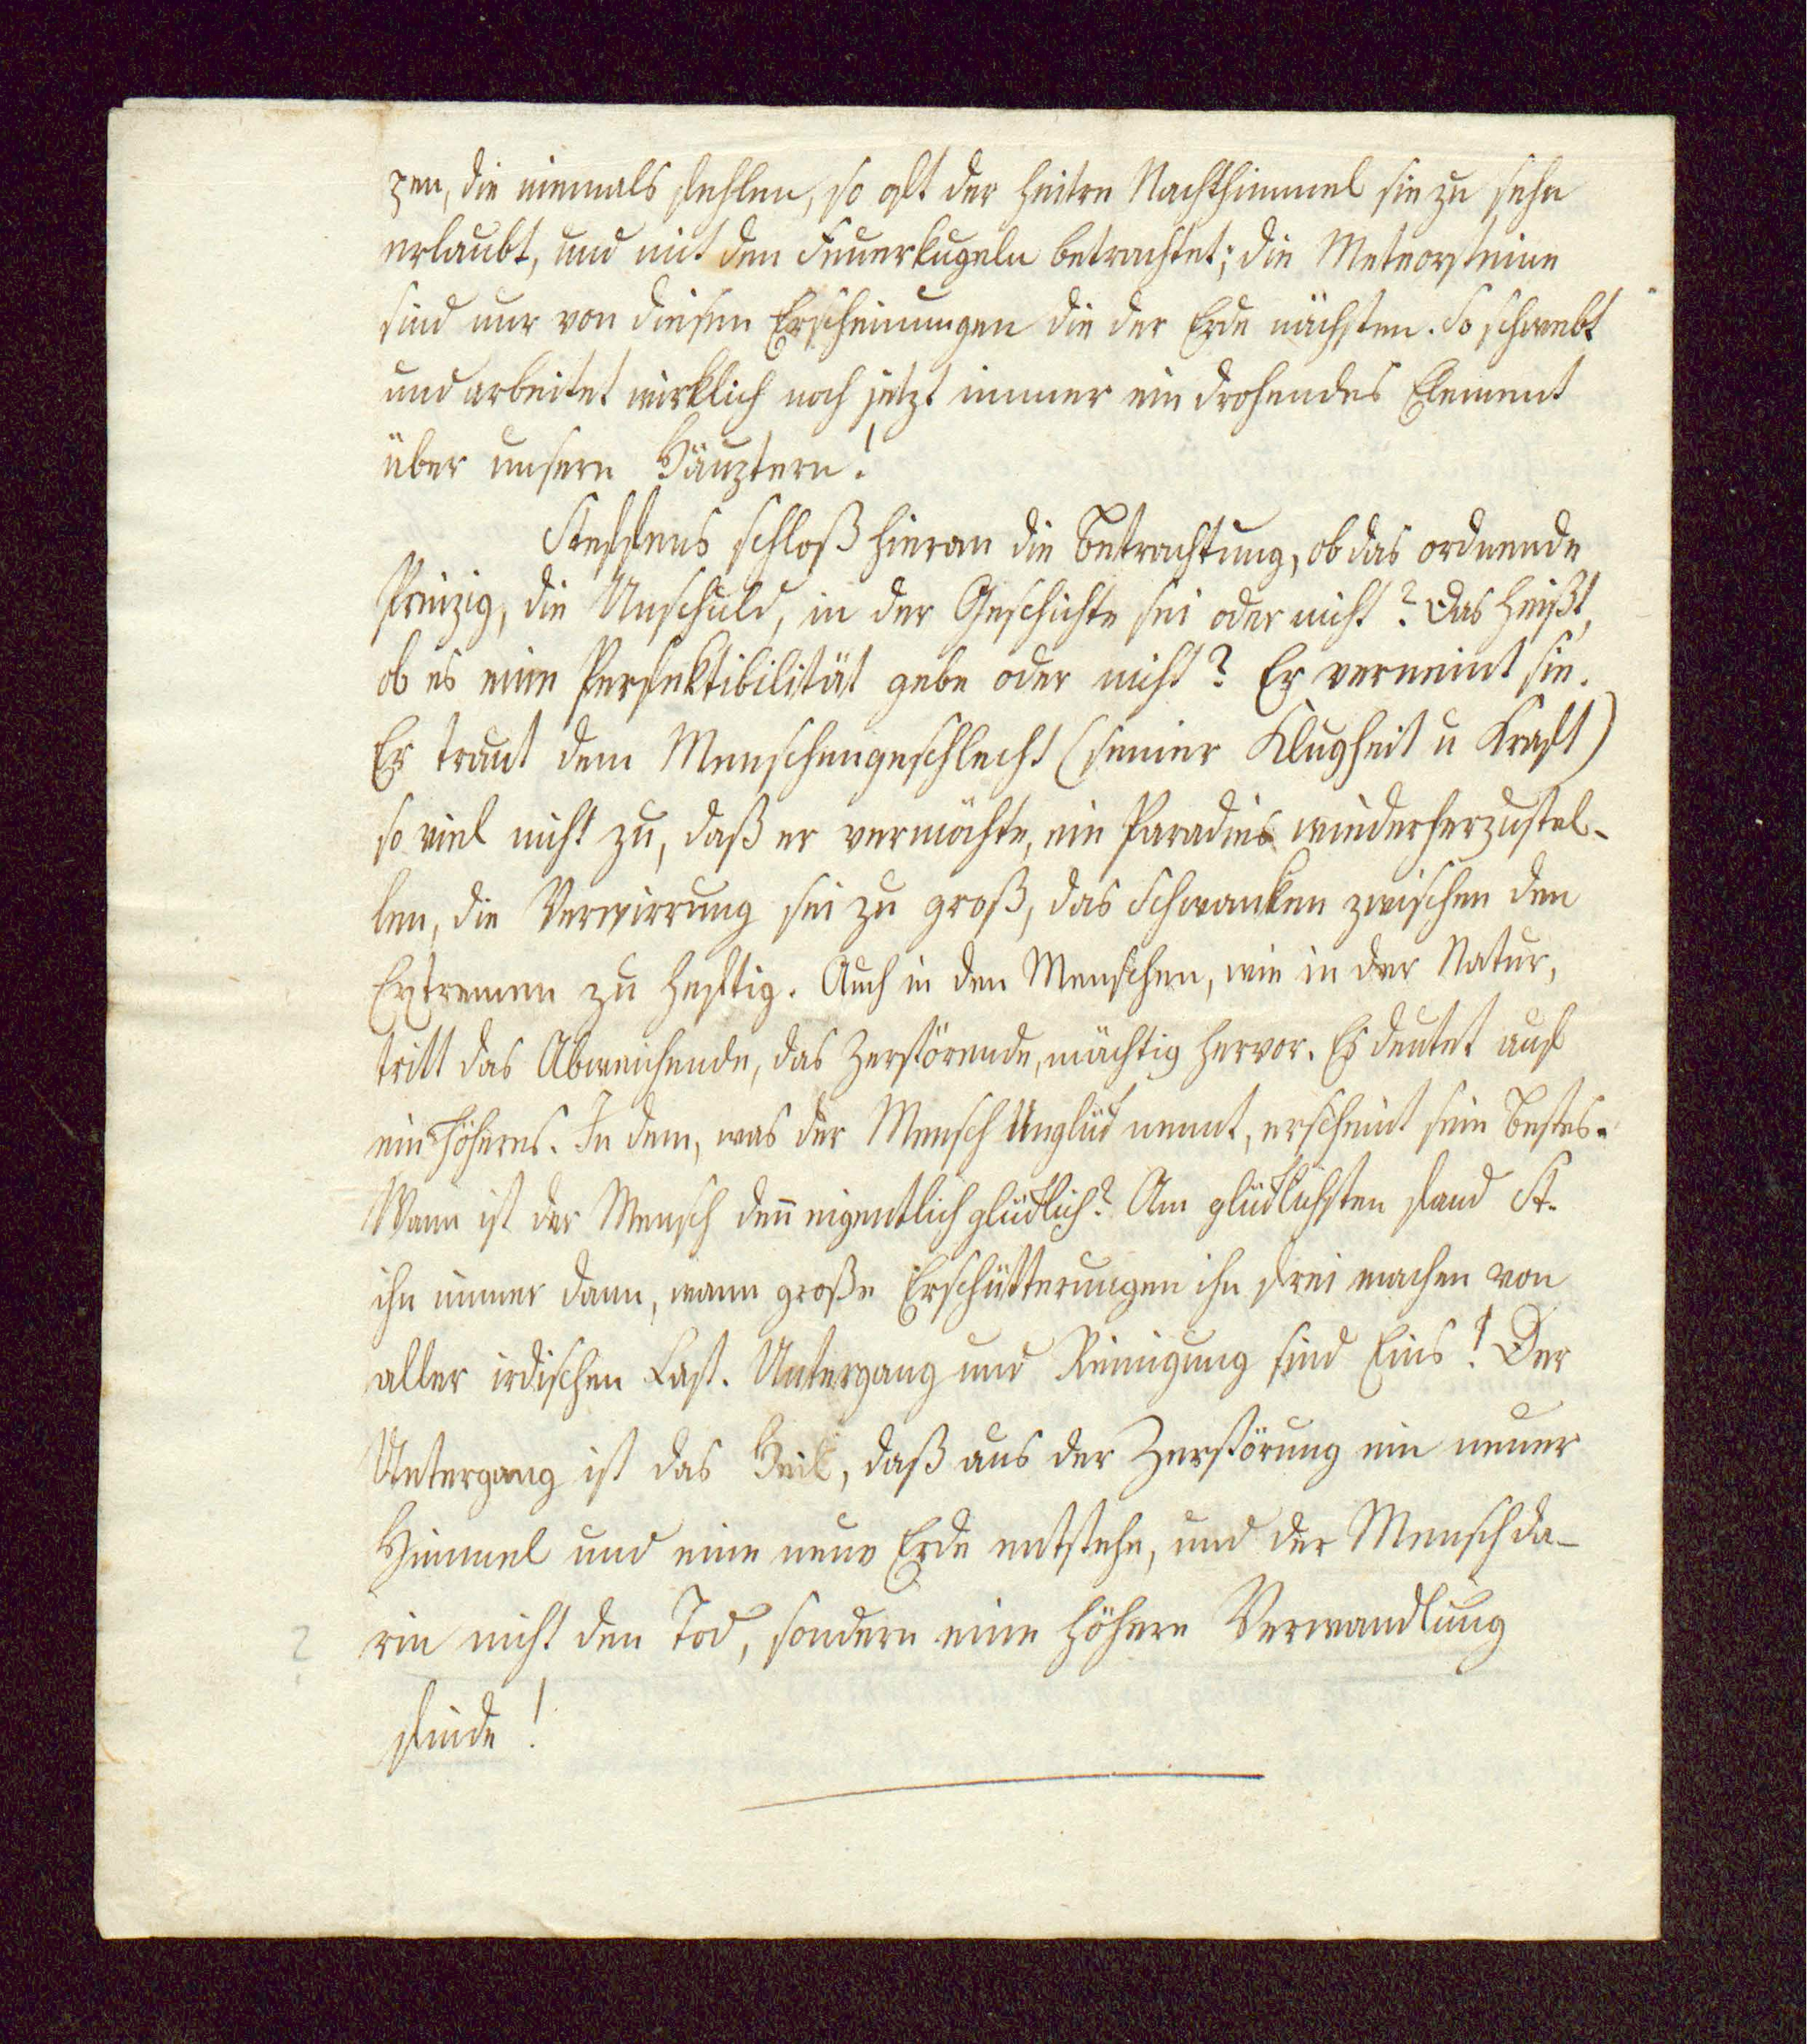 pen, die niemals fehlen, so oft der heitre Nachthimmel sie zu sehn
erlaubt, und mit den Feuerkugeln betrachtet; die Meteorsteine
sind nur von diesen Erscheinungen die der Erde nächsten. So schwebt
und arbeitet wirklich noch jetzt immer ein drohendes Element
über unsern Häuptern!
Steffens schloß hieran die Betrachtung, ob das ordnende
Prinzip, die Unschuld, in der Geschichte sei oder nicht? Das heißt,
ob es eine Perfektibilität gebe oder nicht? Er verneint sie.
Er traut dem Menschengeschlecht (seiner Klugheit u Kraft)
so viel nicht zu, daß er vermöchte, ein Paradies wiederherzustel-
len, die Verwirrung sei zu groß, das Schwanken zwischen den
Extremen zu heftig. Auch in den Menschen, wie in der Natur,
tritt das Abweichende, das Zerstörende, mächtig hervor. Es deutet auf
ein Höheres. In dem, was der Mensch Unglück nennt, erscheint sein Bestes.
Wann ist der Mensch den̄ eigentlich glücklich? Am glücklichsten fand St.
ihn immer dann, wann große Erschütterungen ihn frei machen von
aller irdischen Last. Untergang und Reinigung sind Eins! Der
Untergang ist das Heil, daß aus der Zerstörung ein neuer
Himmel und eine neue Erde entstehe, und der Mensch da-
rin nicht den Tod, sondern eine höhere Verwandlung
?
finde!